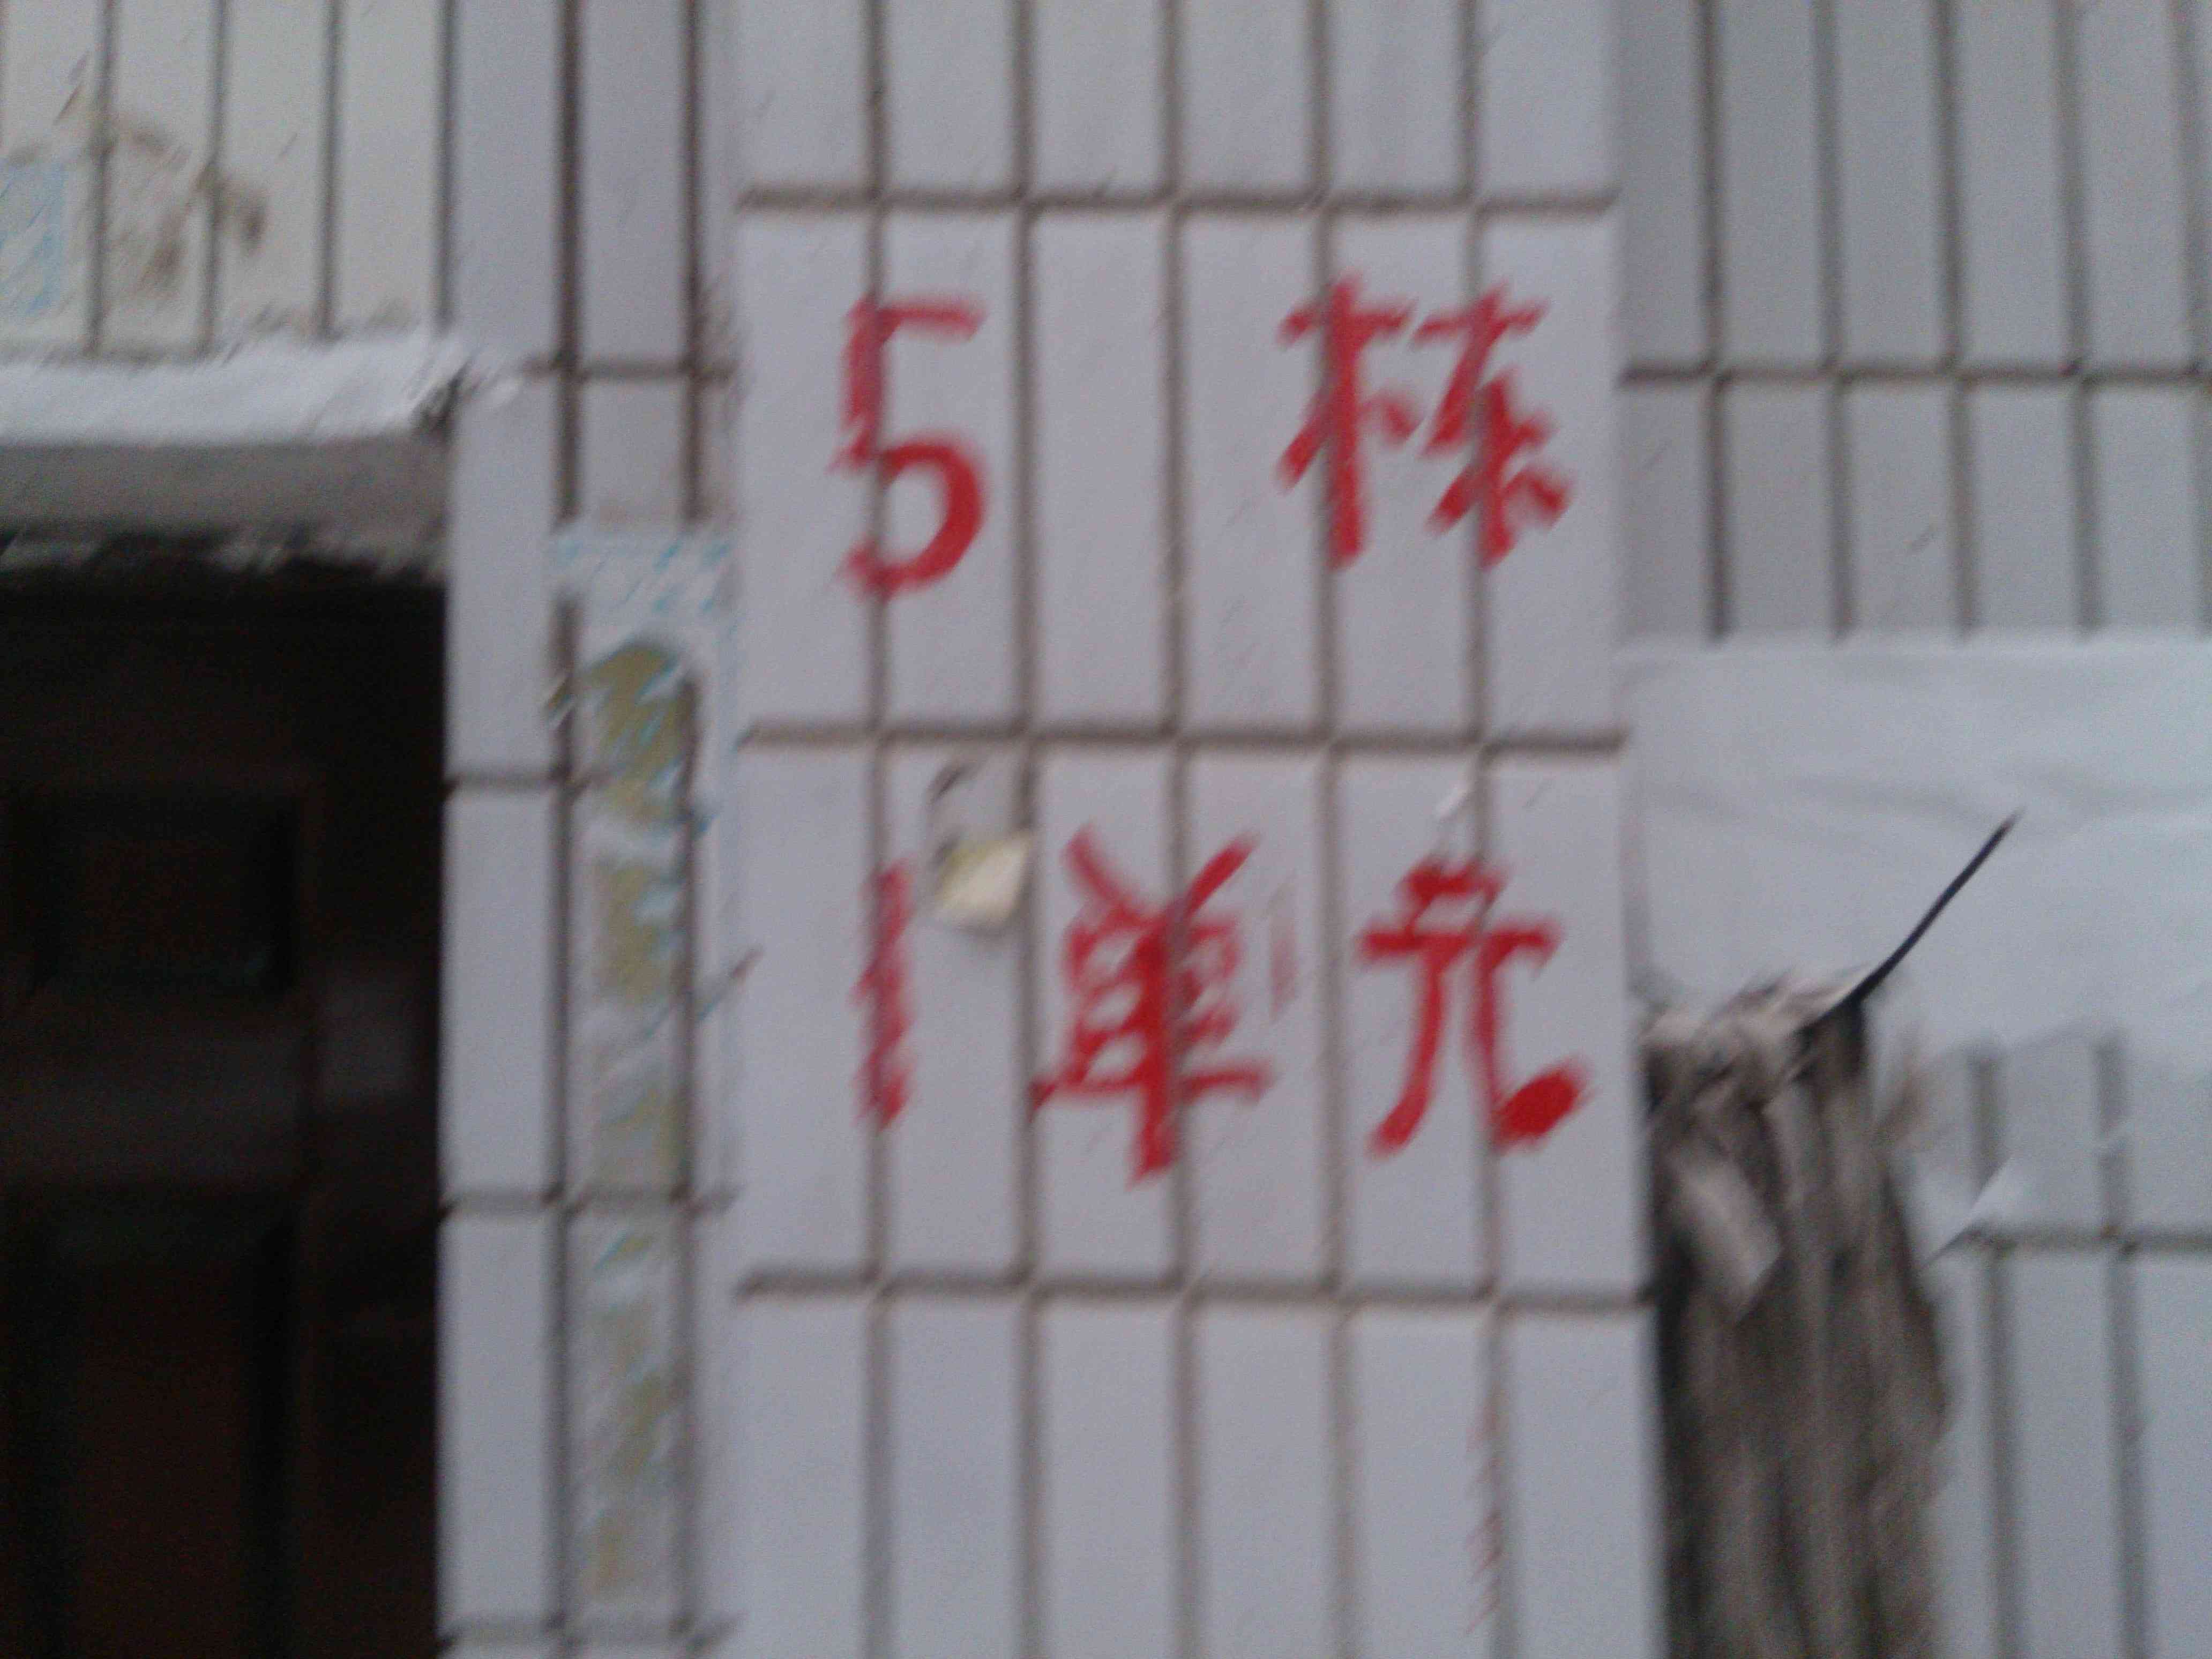 5 栋
1单元